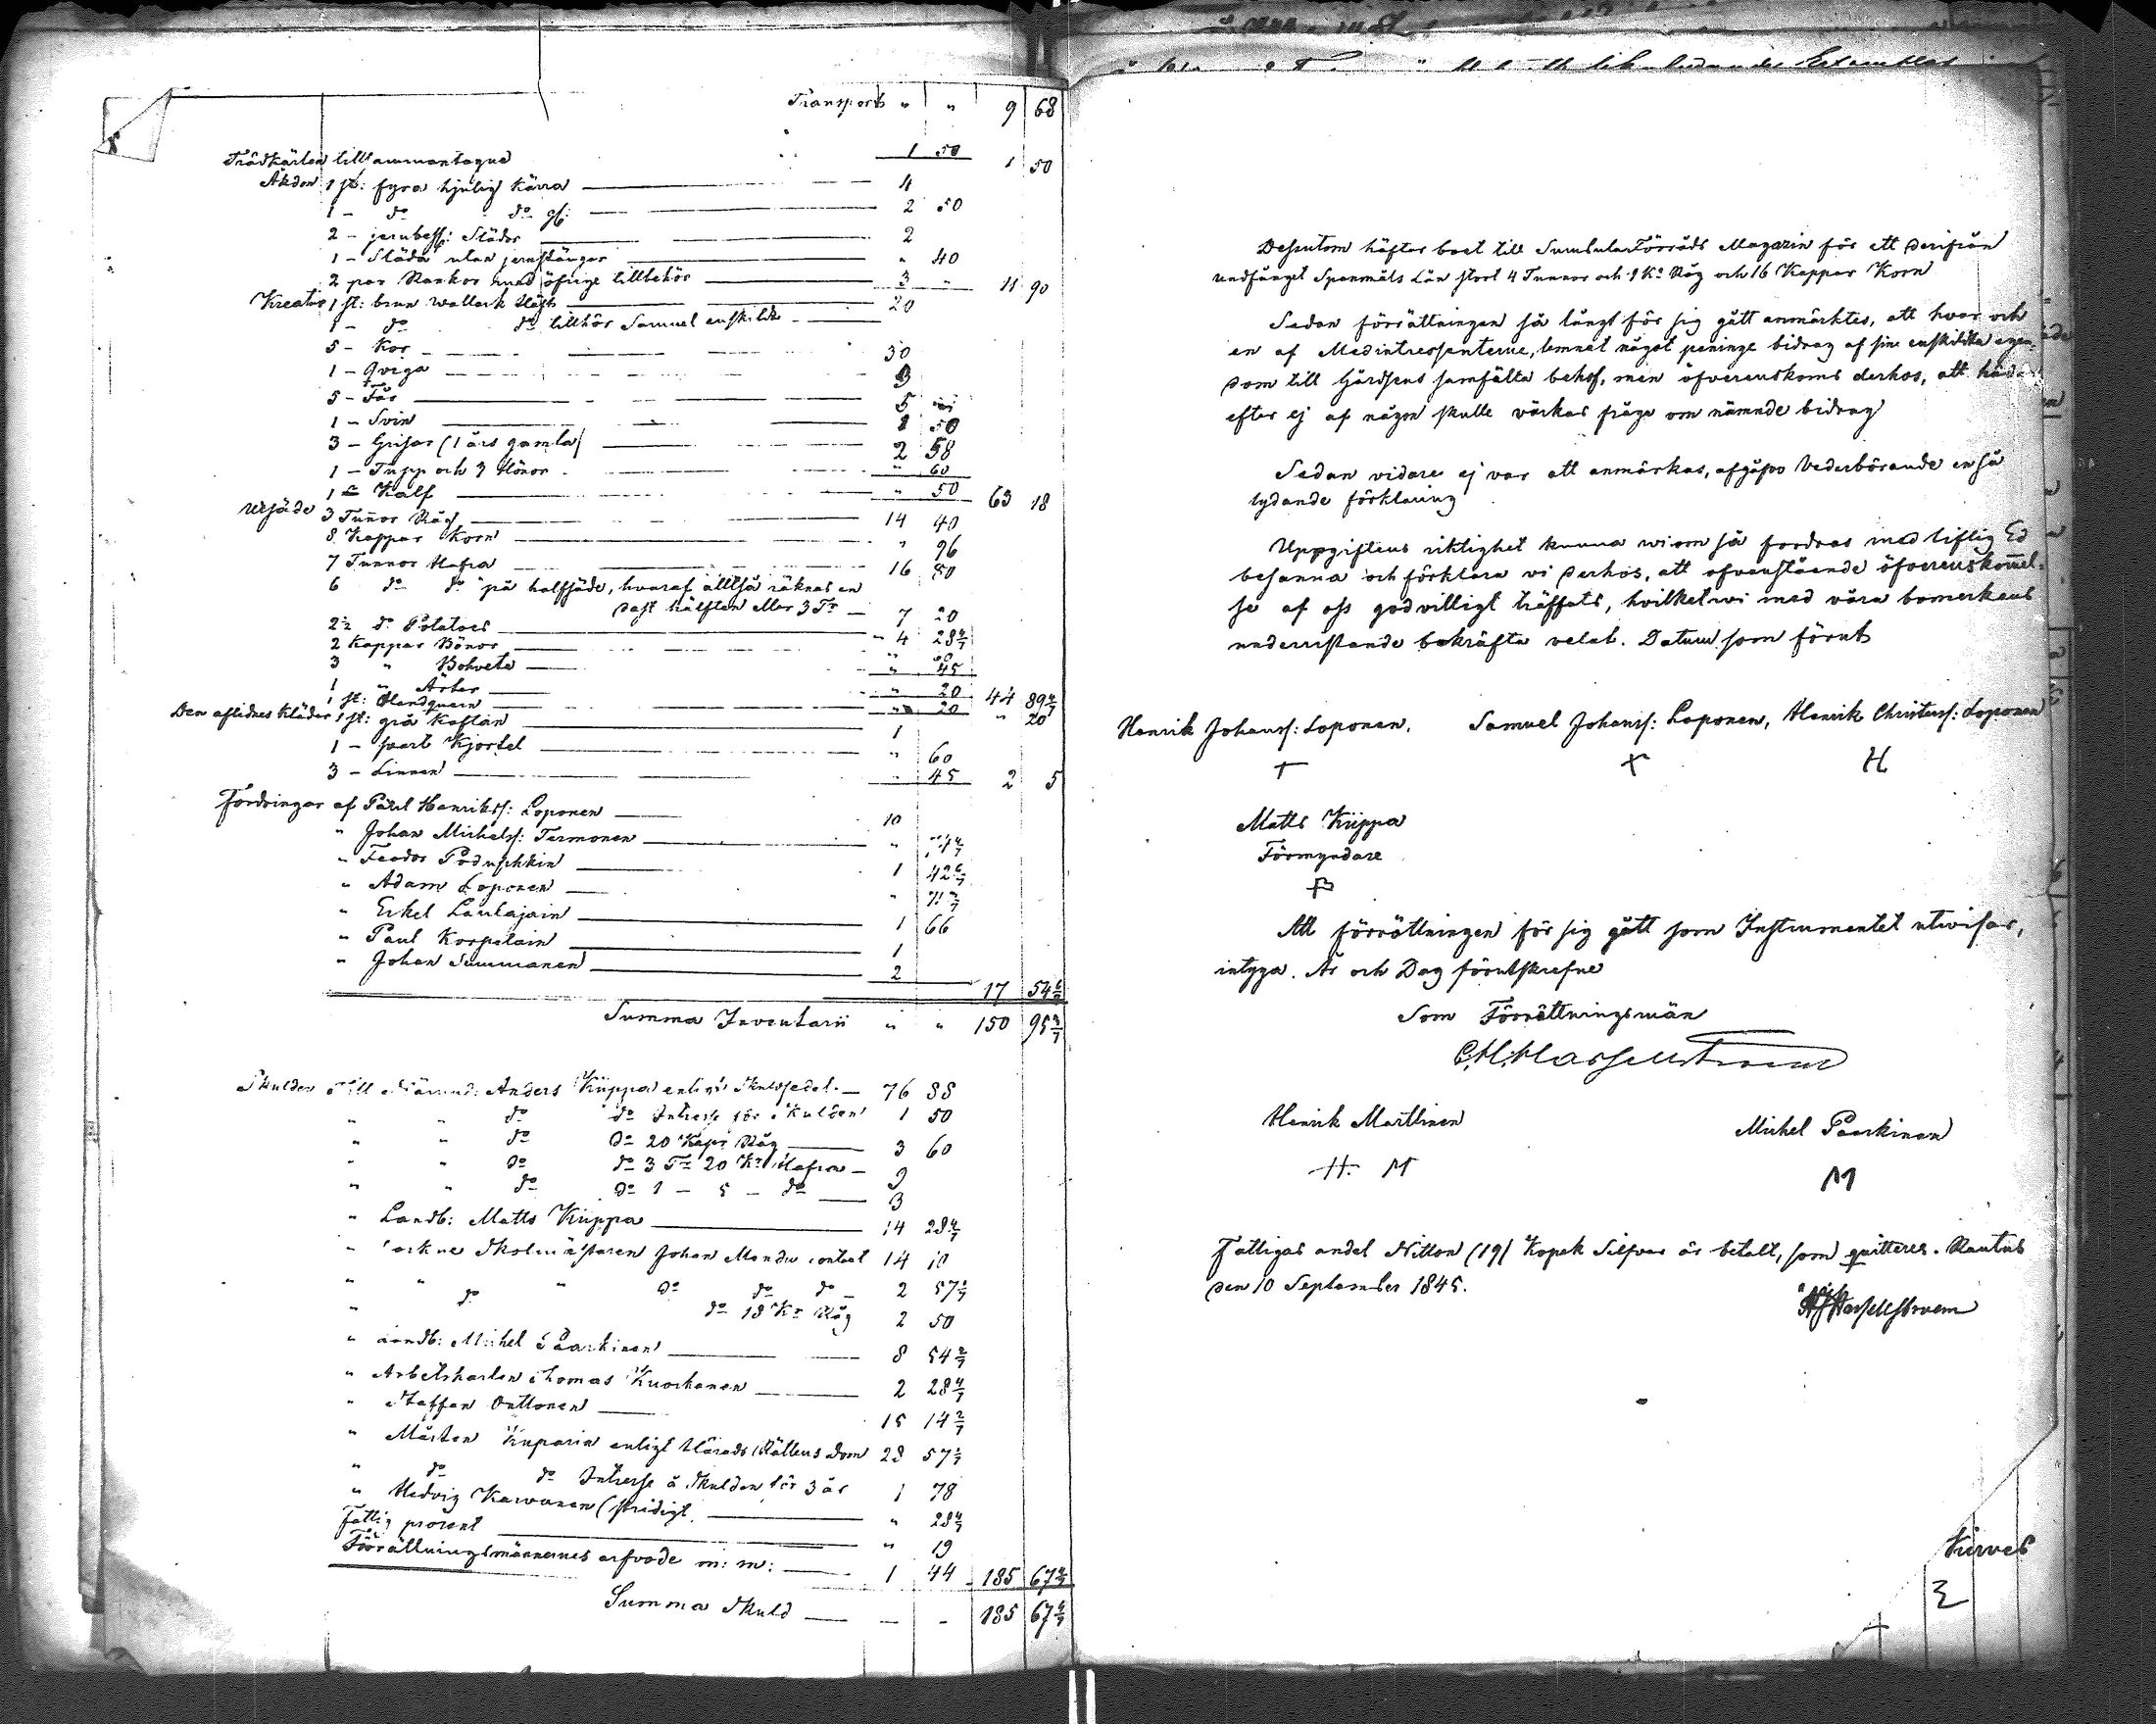 Transport " " 9 68
Trädkärlen tillsammantagne 1 50 1 50
Åkdon 1 st: fyra hjulig Kärra 4
1 - do do 2 50
2 - jernbesl: Slädor 2
1 - Släda utan jernstänger " 40
2 par Rankor med öfrige tillbehör 3 " 11 90
Kreatur 1 st: brun Wallack Häst 20
1 - do do tillhör Samuel enskildt
5 - Kor 30
1 - Qviga 3
5 - Får 5
1 - Svin 1 50
3 - Grisar (1 års gamla) 2 58
1 - Tupp och 3 Hönor " 60
1 - Kalf " 50 63 18
Utsäde 3 Tunnor Råg 14 40
8 Kappar Korn " 96
7 Tunnor Hafra 16 80
6 do do på halfsäde, hvaraf alltså räknas en
dast hälften eller 3 Tr 7 20
2½ do Potatoes 4 28 4/7
2 Kappar Bönor "
3 " Bohvete " 45
1 " Ärter " 20 44 89 4/7
1 st: Handqvarn " 20 " 20
Den aflidnes Kläder 1 st: grå Kaftan 1
1 - svart Kjortel " 60
3 - Linnen " 45 2 5
Fordringar af Påhl Henrikss: Loponen 10
" Johan Michelss: Termonen "
" Feodor Poduschkin 1 42 6/7
" Adam Loponen " 71 3/7
" Erkel Laulajain 1 66
" Paul Korpelain 1
" Johan Summanen 2
17 54 6/7
Summa Inventarii " " 150 95 3/7
Skulder Till Nämnd: Anders Kiippa enligt Skuldsedel 76 88
" " do do Intresse för Skulden 1 50
" " do do 20 Kapr Råg 3 60
" " do do 3 Tr 20 Kr Hafra 9
" " do do 1 - 5 - do 3
" Landb: Matts Kiippa 14 28 4/7
" Skolmästaren Johan Mandu contant 14 10
" " " do do do 2 57 1/7
" do do 18 Kr Råg 2 50
" Landb: Michel Paarkinen 8 54 2/7
" Arbetskarlen Thomas Kuorkanen 2 28 4/7
" Staffan Onttonen 15 14 2/7
" Mårten Kuparin enligt Härads Rättens dom 28 57 1/7
" do do Intresse å Skulden för 3 år 1 78
" Hedvig Karvanen (stridigt. " 28 4/7
Fattig procent " 19
Förrättningsmännernes arfvode m: m: 1 44 185 67 4/7
Summa Skuld - - 185 67 4/7
Dessutom häftar boet till Magazin för ett derifrån
undfånget Spanmåls Lån stort 4 Tunnor och 9 Kr Råg och 16 Kappar Korn
Sedan förrättningen så långt för sig gått anmärktes, att hvar och
en af Medintressenterne, lemnat något peninge bidrag af sin enskildta egen
dom till Gårdsens samfälta behof, men öfverenskoms derhos, att häd
efter ej af någon skulle väckas fråga om nämnde bidrag
Sedan vidare ej var att anmärkas, afgåfvo Vederbörande en så
lydande förklaring
Uppgiftens riktighet kunna wi om så fordras med liflig Ed
besanna och förklara vi derhos, att ofvanstående öfverenskommel
se af oss godvilligt träffats, hvilket wi med våra bomerkens
underristande bekräfta velat. Datum som förut
Henrik Johanss: Loponen, Samuel Johanss: Loponen, Henrik Christerss: Loponen
H
Matts Kiippa
Förmyndare
Att förrättningen för sig gått som Instrumentet utwisar,
intyga. År och Dag förutskrefne
Som Förrättningsmän
Henrik Marttinen Michel Paarkinen
H. M M
Fattigas andel Nitton (19) Kopek Silfver är betalt, som qvitteres. Rautus
den 10 September 1845.
Kirves